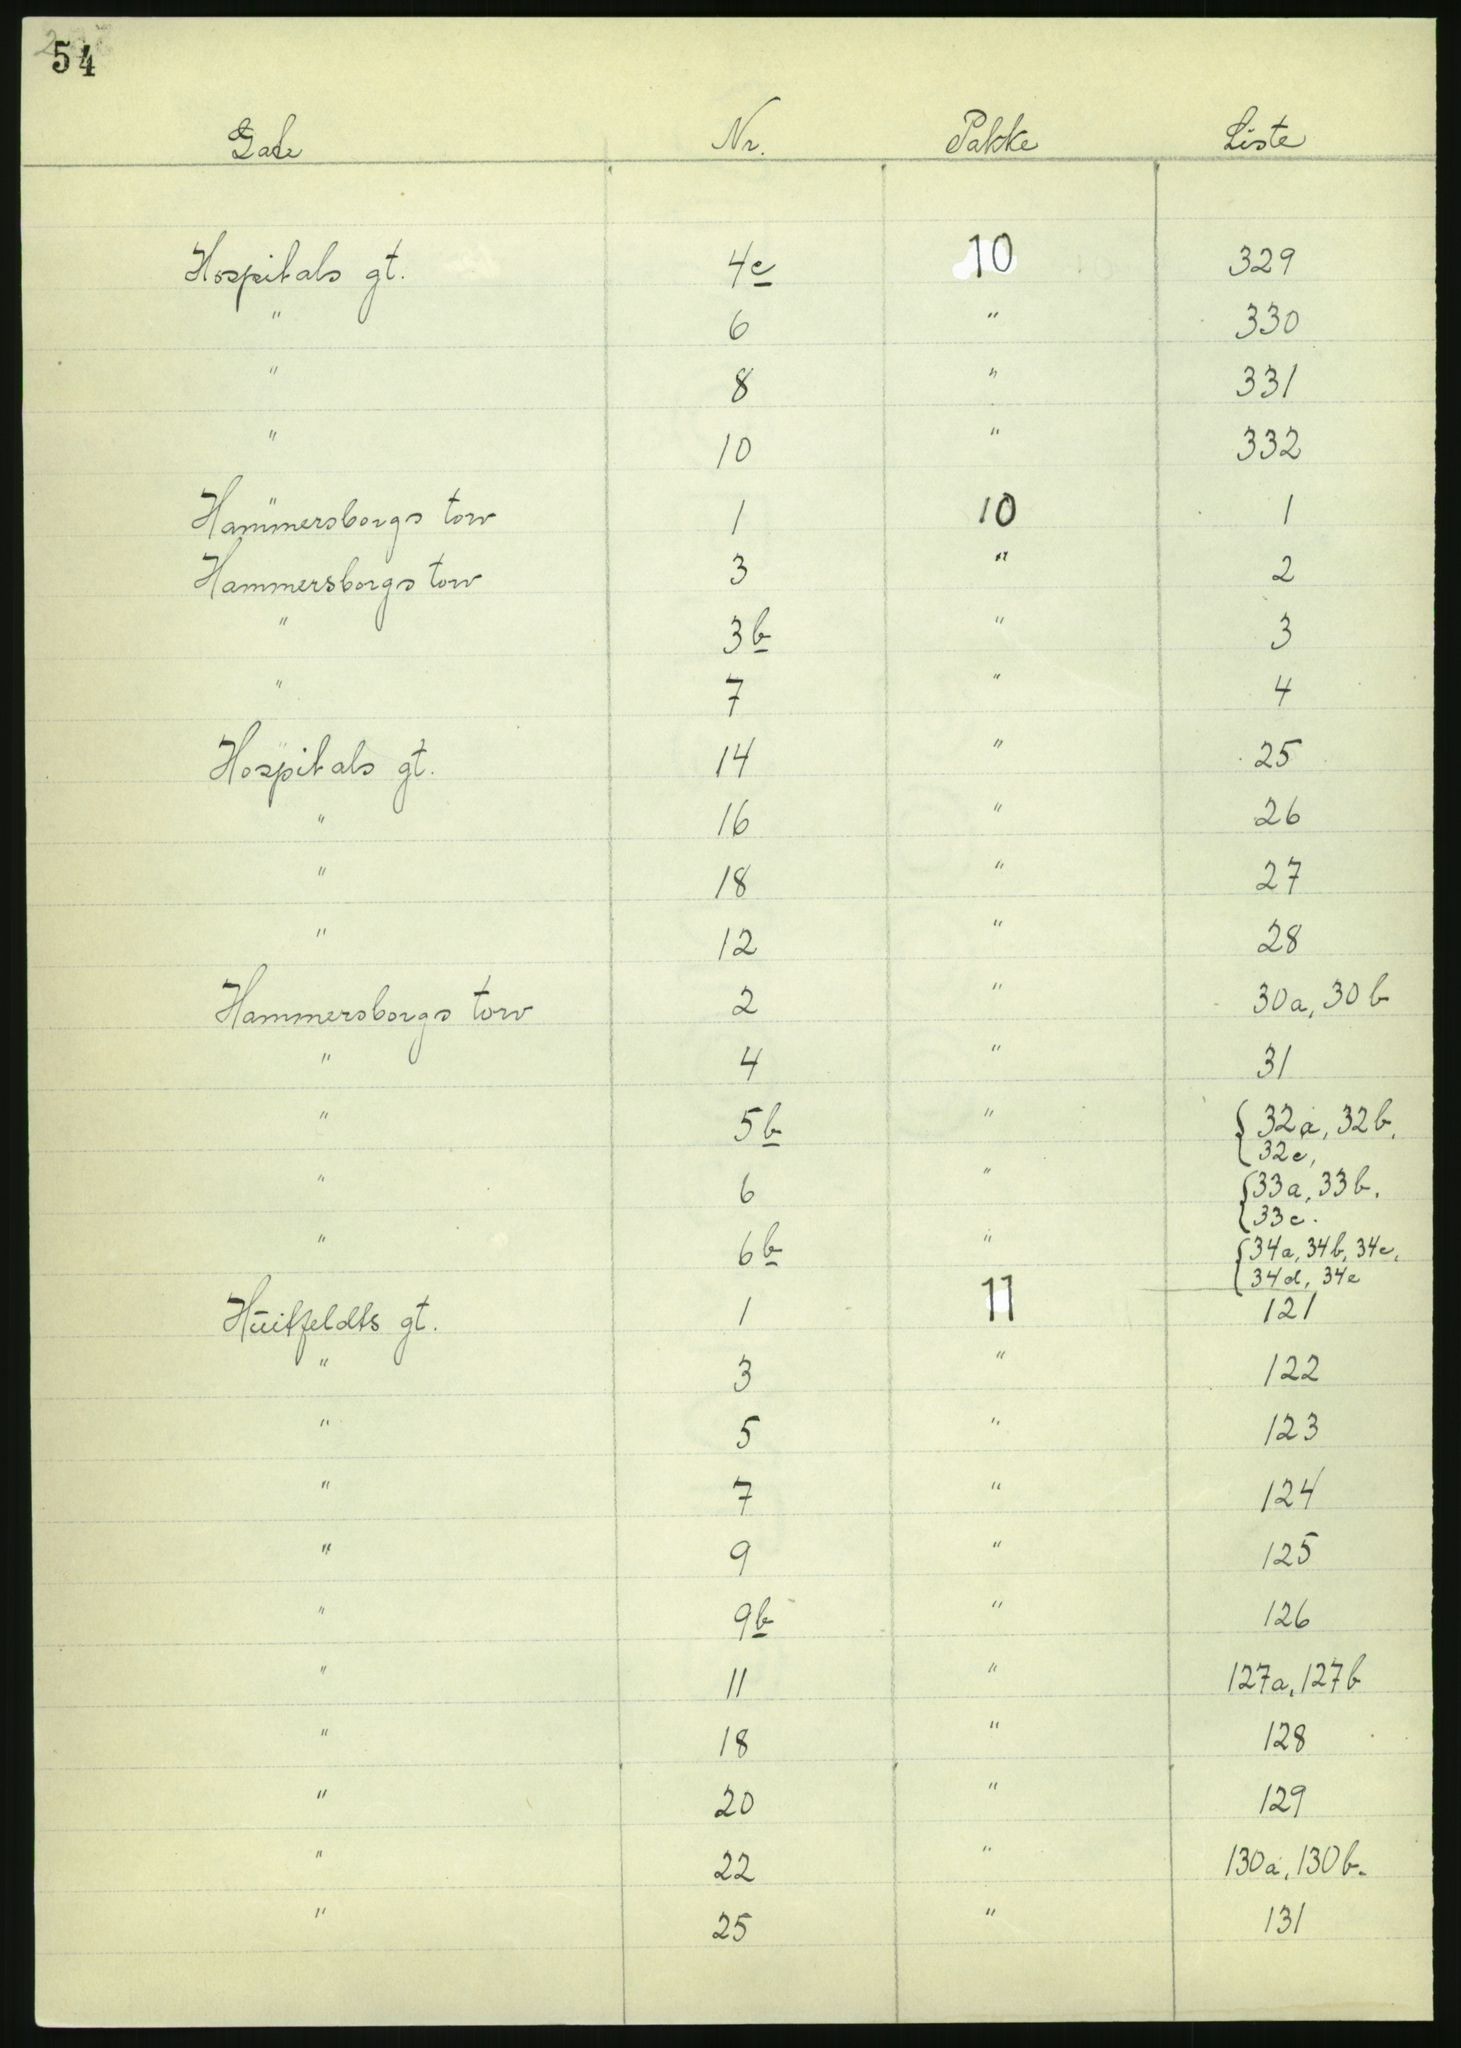 54
Gate Nr. Pakke Liste
Hospitals gt. 4c 10 329
" 6 " 330
" 8 " 331
" 10 " 332
Hammersborgs torv 1 10 1
Hammersborgs torv 3 " 2
" 3b " 3
" 7 " 4
Hospitals gt. 14 " 25
" 16 " 26
" 18 " 27
" 12 " 28
Hammersborgs torv 2 " 30a, 30b
" 4 " 31
" 5b " 32a, 32b,
32c,
" 6 " 33a, 33b,
33c.
" 6b " 34a, 34b, 34c,
34d, 34e
Huitfeldts gt. 1 11 121
" 3 " 122
" 5 " 123
" 7 " 124
" 9 " 125
" 9b " 126
" 11 " 127a, 127b
" 18 " 128
" 20 " 129
" 22 " 130a, 130b.
" 25 " 131